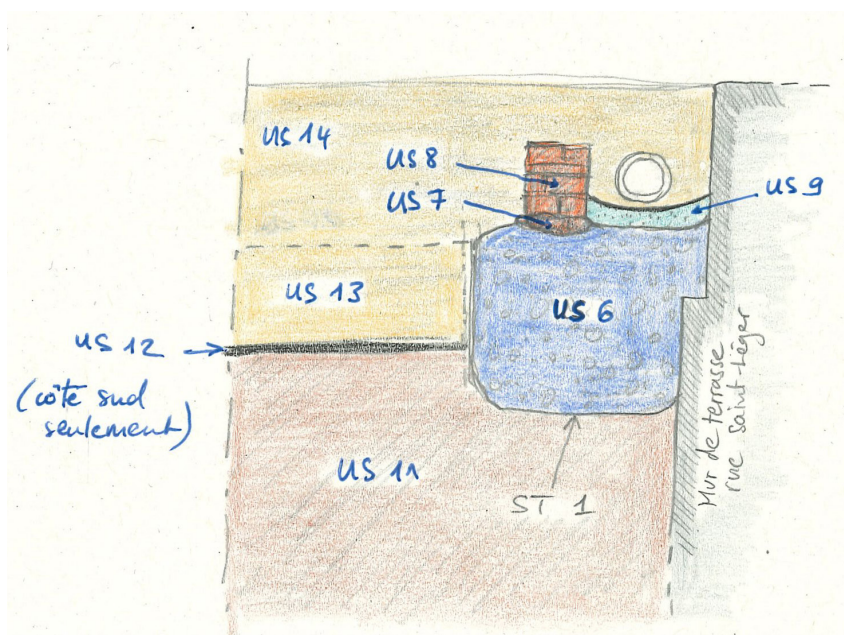 US 14
US 8
US 7
US 9
US 13
US 6
US 12
(côté sud
seulement)
US 11
ST 1
Mur de terrasse
rue Saint-Léger